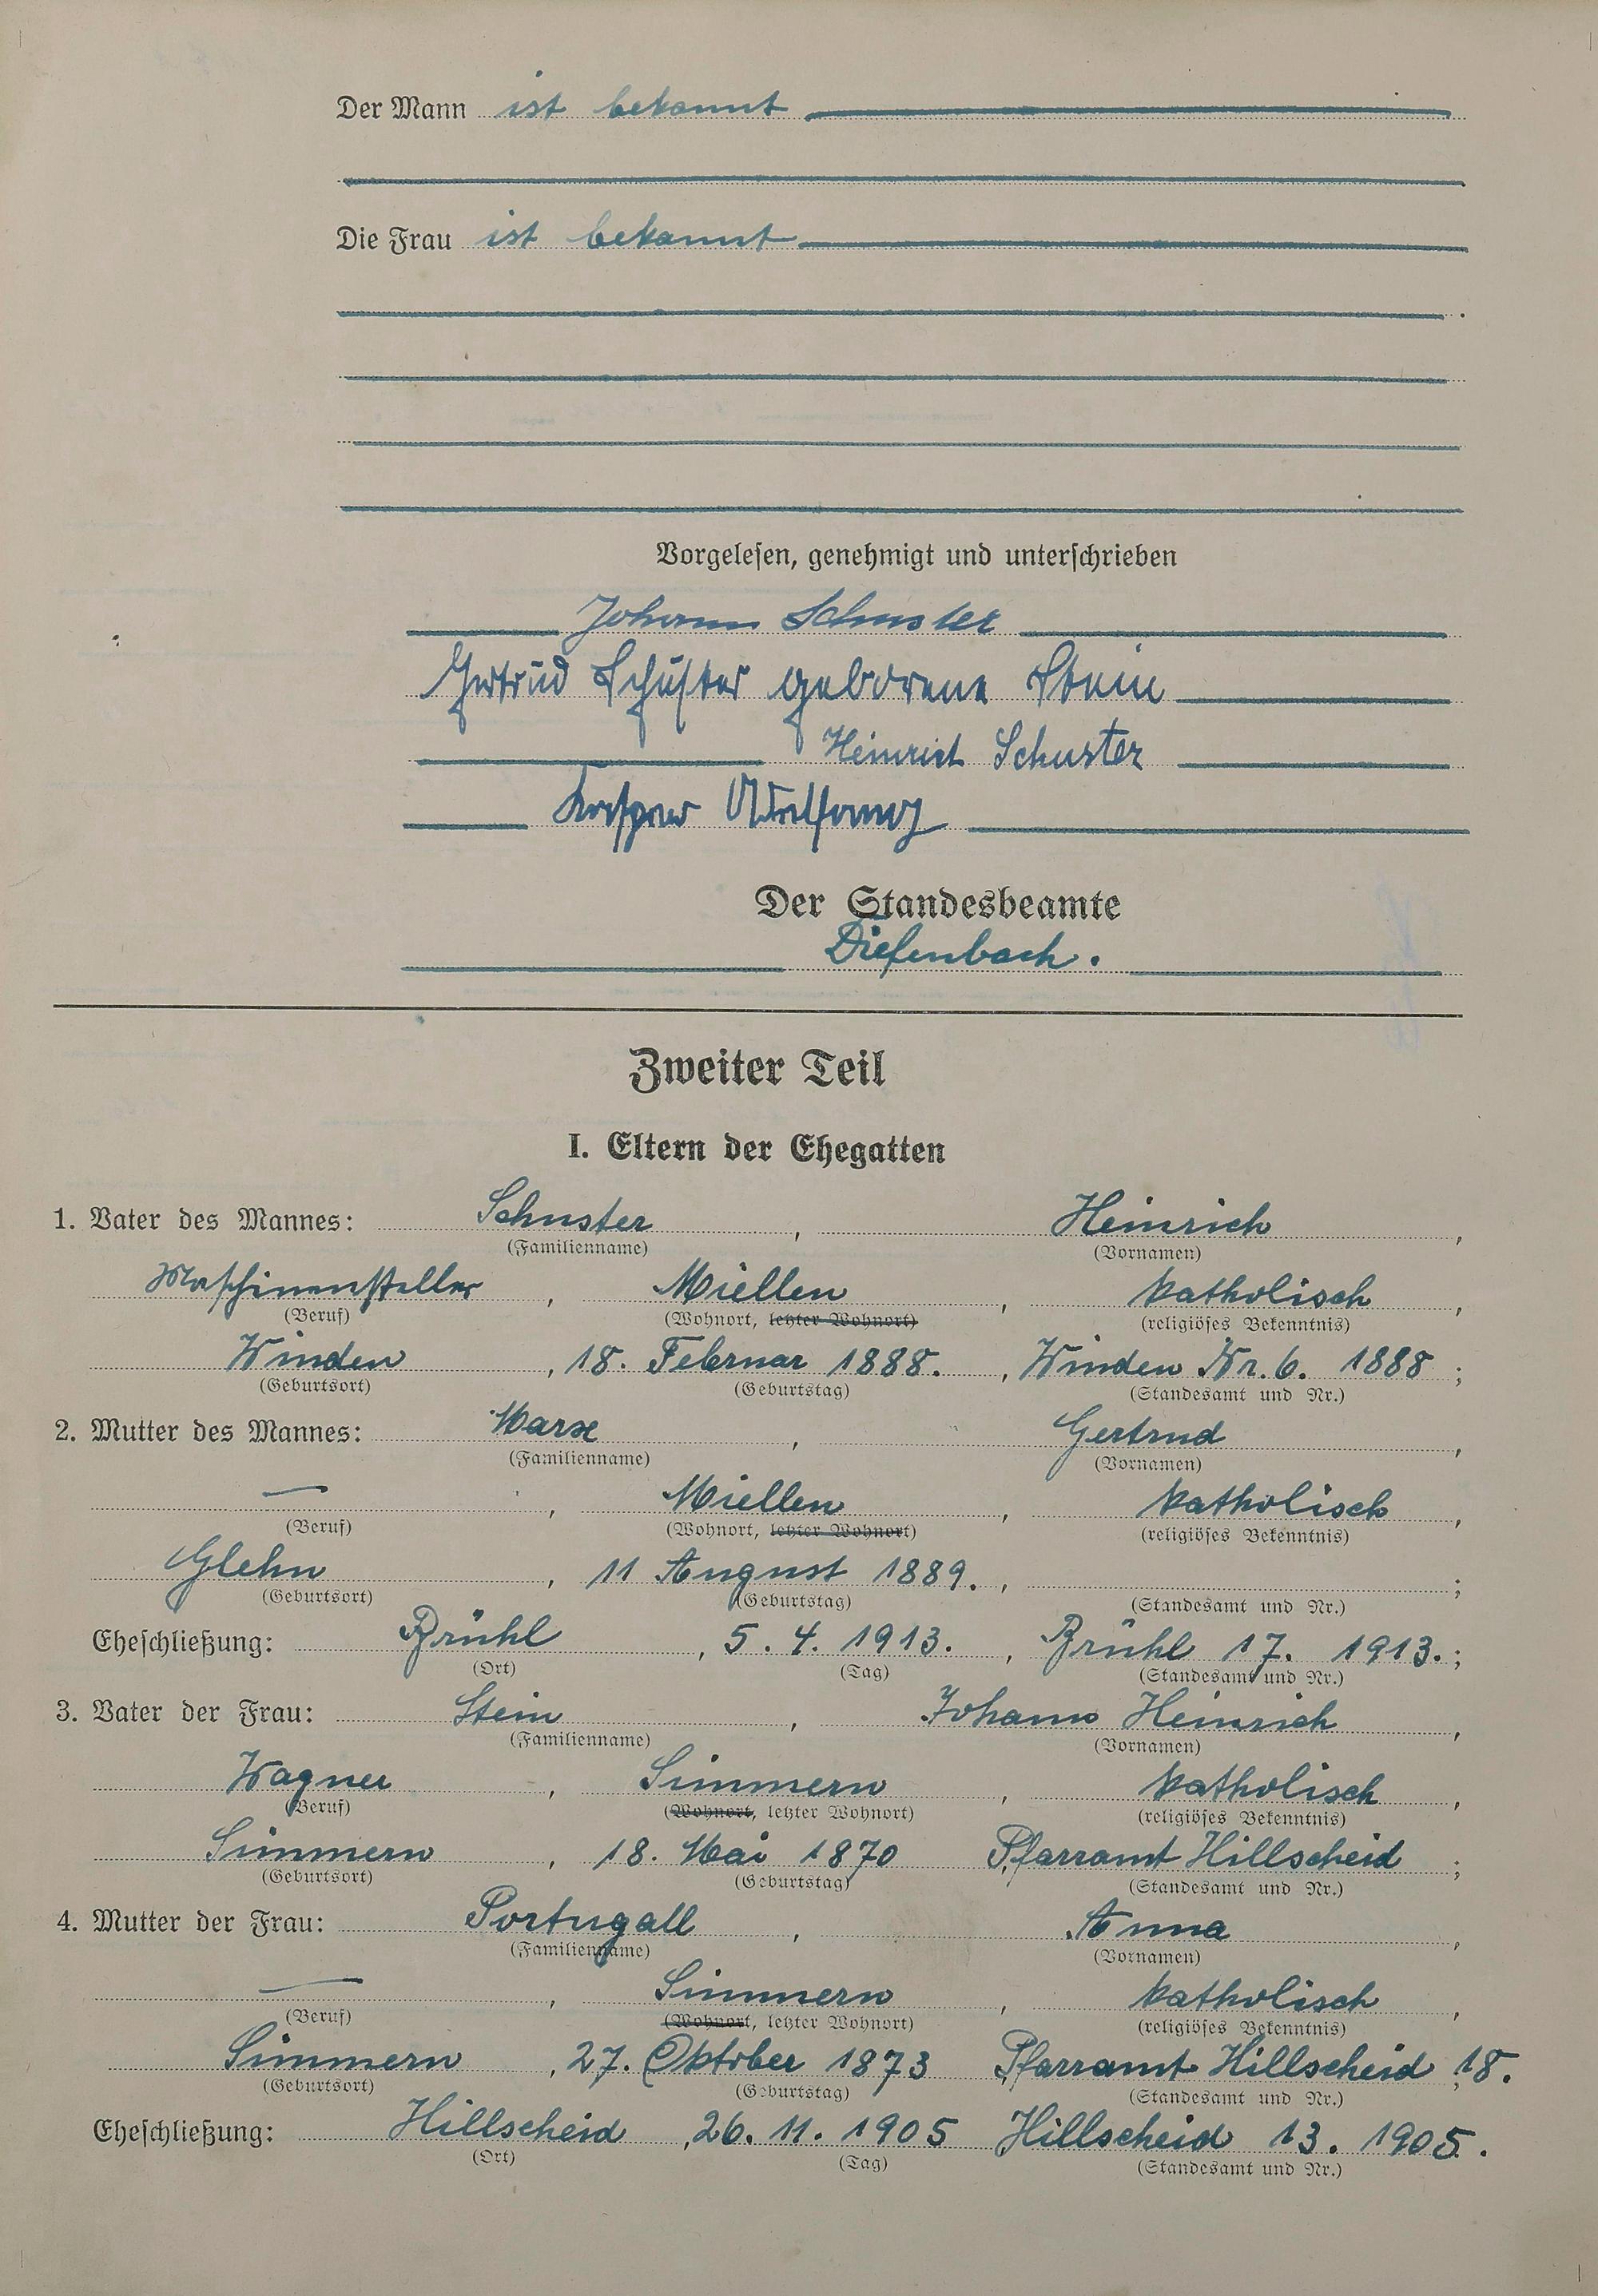 Der Mann ist bekannt
Die Frau ist bekannt
Vorgelesen, genehmigt und unterschrieben
Johann Schuster
Gertrud Schuster geborene Stein
Heinrich Schuster
Kaspar
Der Standesbeamte
Diefenbach.
Zweiter Teil
I. Eltern der Ehegatten
1. Vater des Mannes: Schuster, Heinrich,
(Familienname) (Vornamen)
Maschinensteller, Miellen, katholisch,
(Beruf) (Wohnort, letzter Wohnort) (religiöses Bekenntnis)
Winden, 18. Februar 1888., Winden Nr. 6. 1888;
(Geburtsort) (Geburtstag) (Standesamt und Nr.)
2. Mutter des Mannes: Marx, Gertrud,
(Familienname) (Vornamen)
—, Miellen, katholisch,
(Beruf) (Wohnort, letzter Wohnort) (religiöses Bekenntnis)
Glehn, 11 August 1889., ;
(Geburtsort) (Geburtstag) (Standesamt und Nr.)
Eheschließung: Brühl, 5. 4. 1913., Brühl 17. 1913.;
(Ort) (Tag) (Standesamt und Nr.)
3. Vater der Frau: Stein, Johann Heinrich,
(Familienname) (Vornamen)
Wagner, Simmern, katholisch,
(Beruf) (Wohnort, letzter Wohnort) (religiöses Bekenntnis)
Simmern, 18. Mai 1870 Pfarramt Hillscheid;
(Geburtsort) (Geburtstag) (Standesamt und Nr.)
4. Mutter der Frau: Portugall, Anna,
(Familienname) (Vornamen)
—, Simmern, katholisch,
(Beruf) (Wohnort, letzter Wohnort) (religiöses Bekenntnis)
Simmern, 27. Oktober 1873 Pfarramt Hillscheid 18.
(Geburtsort) (Geburtstag) (Standesamt und Nr.)
Eheschließung: Hillscheid, 26. 11. 1905 Hillscheid 13. 1905.
(Ort) (Tag) (Standesamt und Nr.)